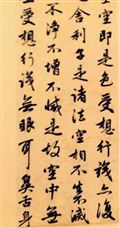 空即是色受想行識亦復
舍利子是諸法空相不生不滅
不淨不增不減是故空中無
受想行識無眼耳鼻舌身